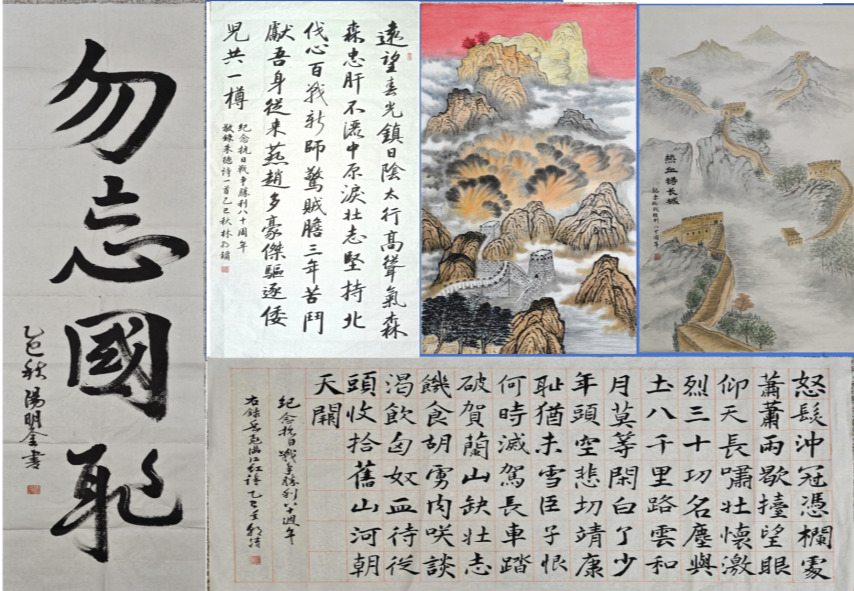 勿忘國恥
乙巳秋
遠望春光鎮日陰太行高聳氣森
森忠肝不灑中原淚壯志堅持北
伐心百戰新師驚賊膽三年苦鬥
獻吾身從來燕趙多豪傑驅逐倭
兒共一樽
紀念抗日戰争勝利八十周年
敬錄朱德詩一首乙巳秋林
热血铸长城
纪念抗战胜利八十周年
怒髮沖冠憑欄處
蕭蕭雨歇擡望眼
仰天長嘯壯懷激
烈三十功名塵與
土八千里路雲和
月莫等閑白了少
年頭空悲切靖康
耻猶未雪臣子恨
何時滅駕長車踏
破賀蘭山缺壯志
饑食胡虜肉咲談
渴飲匈奴血待從
頭收拾舊山河朝
天闕
紀念抗日戰爭勝利八十週年
右錄岳飛滿江紅詩乙巳